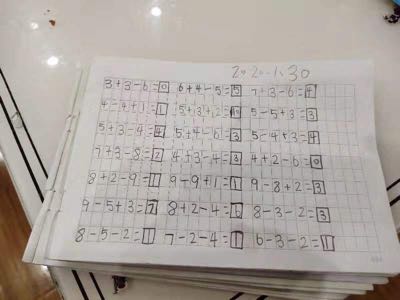 2020.1.30
3+3-6=0 6+4-5=5 7+3-6=4
4-4+1=1 5+3+2=10 5-5+3=3
5+3-4=4 5+4-6=3 5-4+3=4
5+3-8=2 4+3-4=3 4+2-6=0
8+2-9=1 9-9+1=1 9-8+2=3
9-5+3=7 8+2-4=6 8-3-2=3
8-5-2=1 7-2-4=1 6-3-2=1